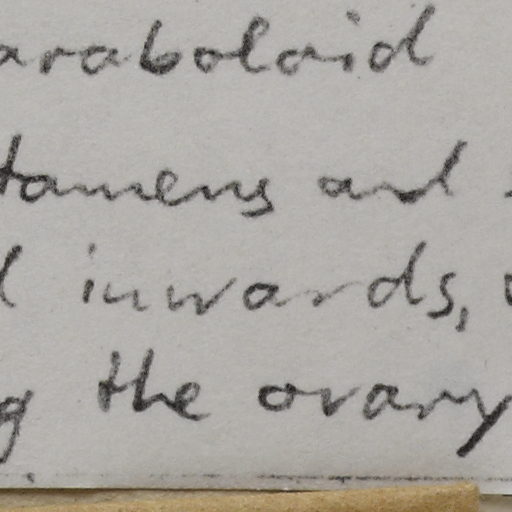 araboloid
tamens and
inwards,
the ovary